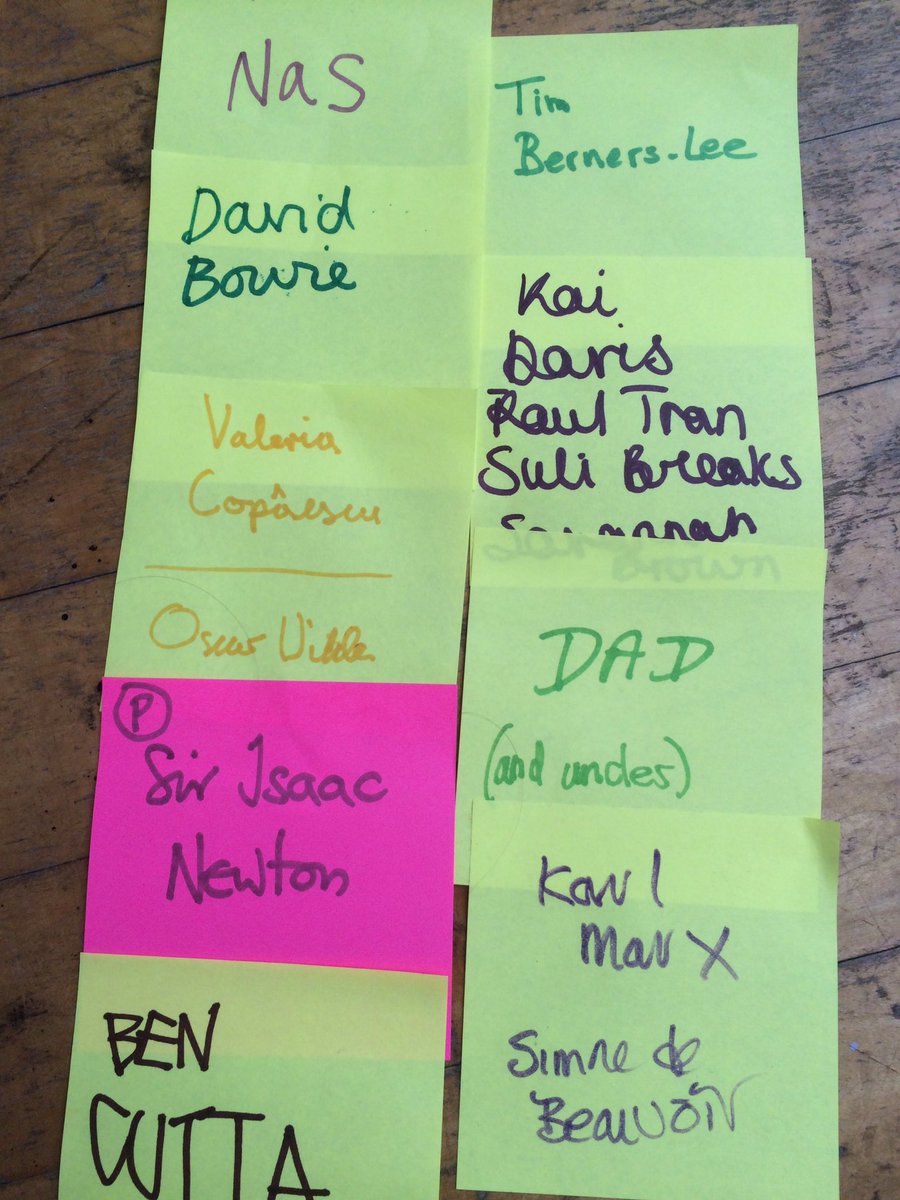 Nas
David
Bowie
Valeria
Copâescu
Oscar Wilde
P
Sir Isaac
Newton
BEN
CUTTA
Tim
Berners-Lee
Kai
Davis
Raul Tran
Suli Breaks
Savannah
Brown
DAD
(and undes)
Karl
Marx
Simne de
Beauvoir